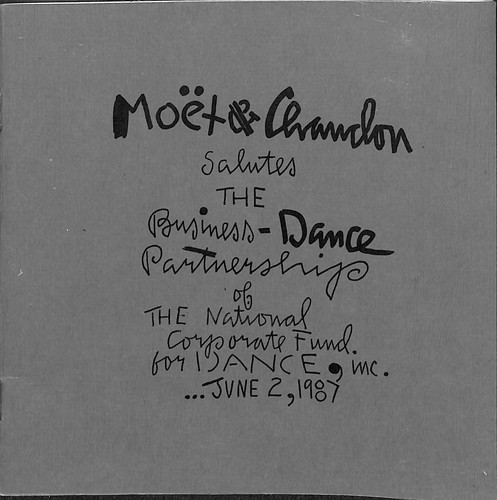 Moët & Chandon
Salutes
THE
Business-Dance
Partnership
of
THE National
Corporate Fund.
for DANCE, inc.
...JUNE 2, 1987